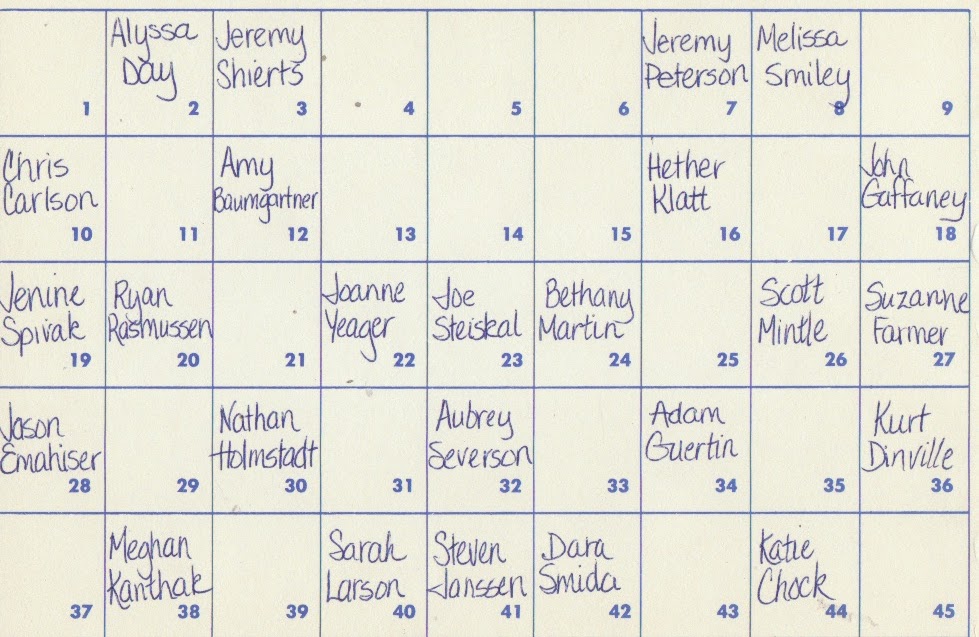 1
Alyssa
Day
2
Jeremy
Shierts
3
4
5
6
Jeremy
Peterson
7
Melissa
Smiley
8
9
Chris
Carlson
10
11
Amy
Baumgartner
12
13
14
15
Hether
Klatt
16
17
John
Gaffaney
18
Jenine
Spivak
19
Ryan
Rasmussen
20
21
Joanne
Yeager
22
Joe
Steiskal
23
Bethany
Martin
24
25
Scott
Mintle
26
Suzanne
Farmer
27
Jason
Emahiser
28
29
Nathan
Holmstadt
30
31
Aubrey
Severson
32
33
Adam
Guertin
34
35
Kurt
Dinville
36
37
Meghan
Kanthak
38
39
Sarah
Larson
40
Steven
Janssen
41
Dara
Smida
42
43
Katie
Chock
44
45